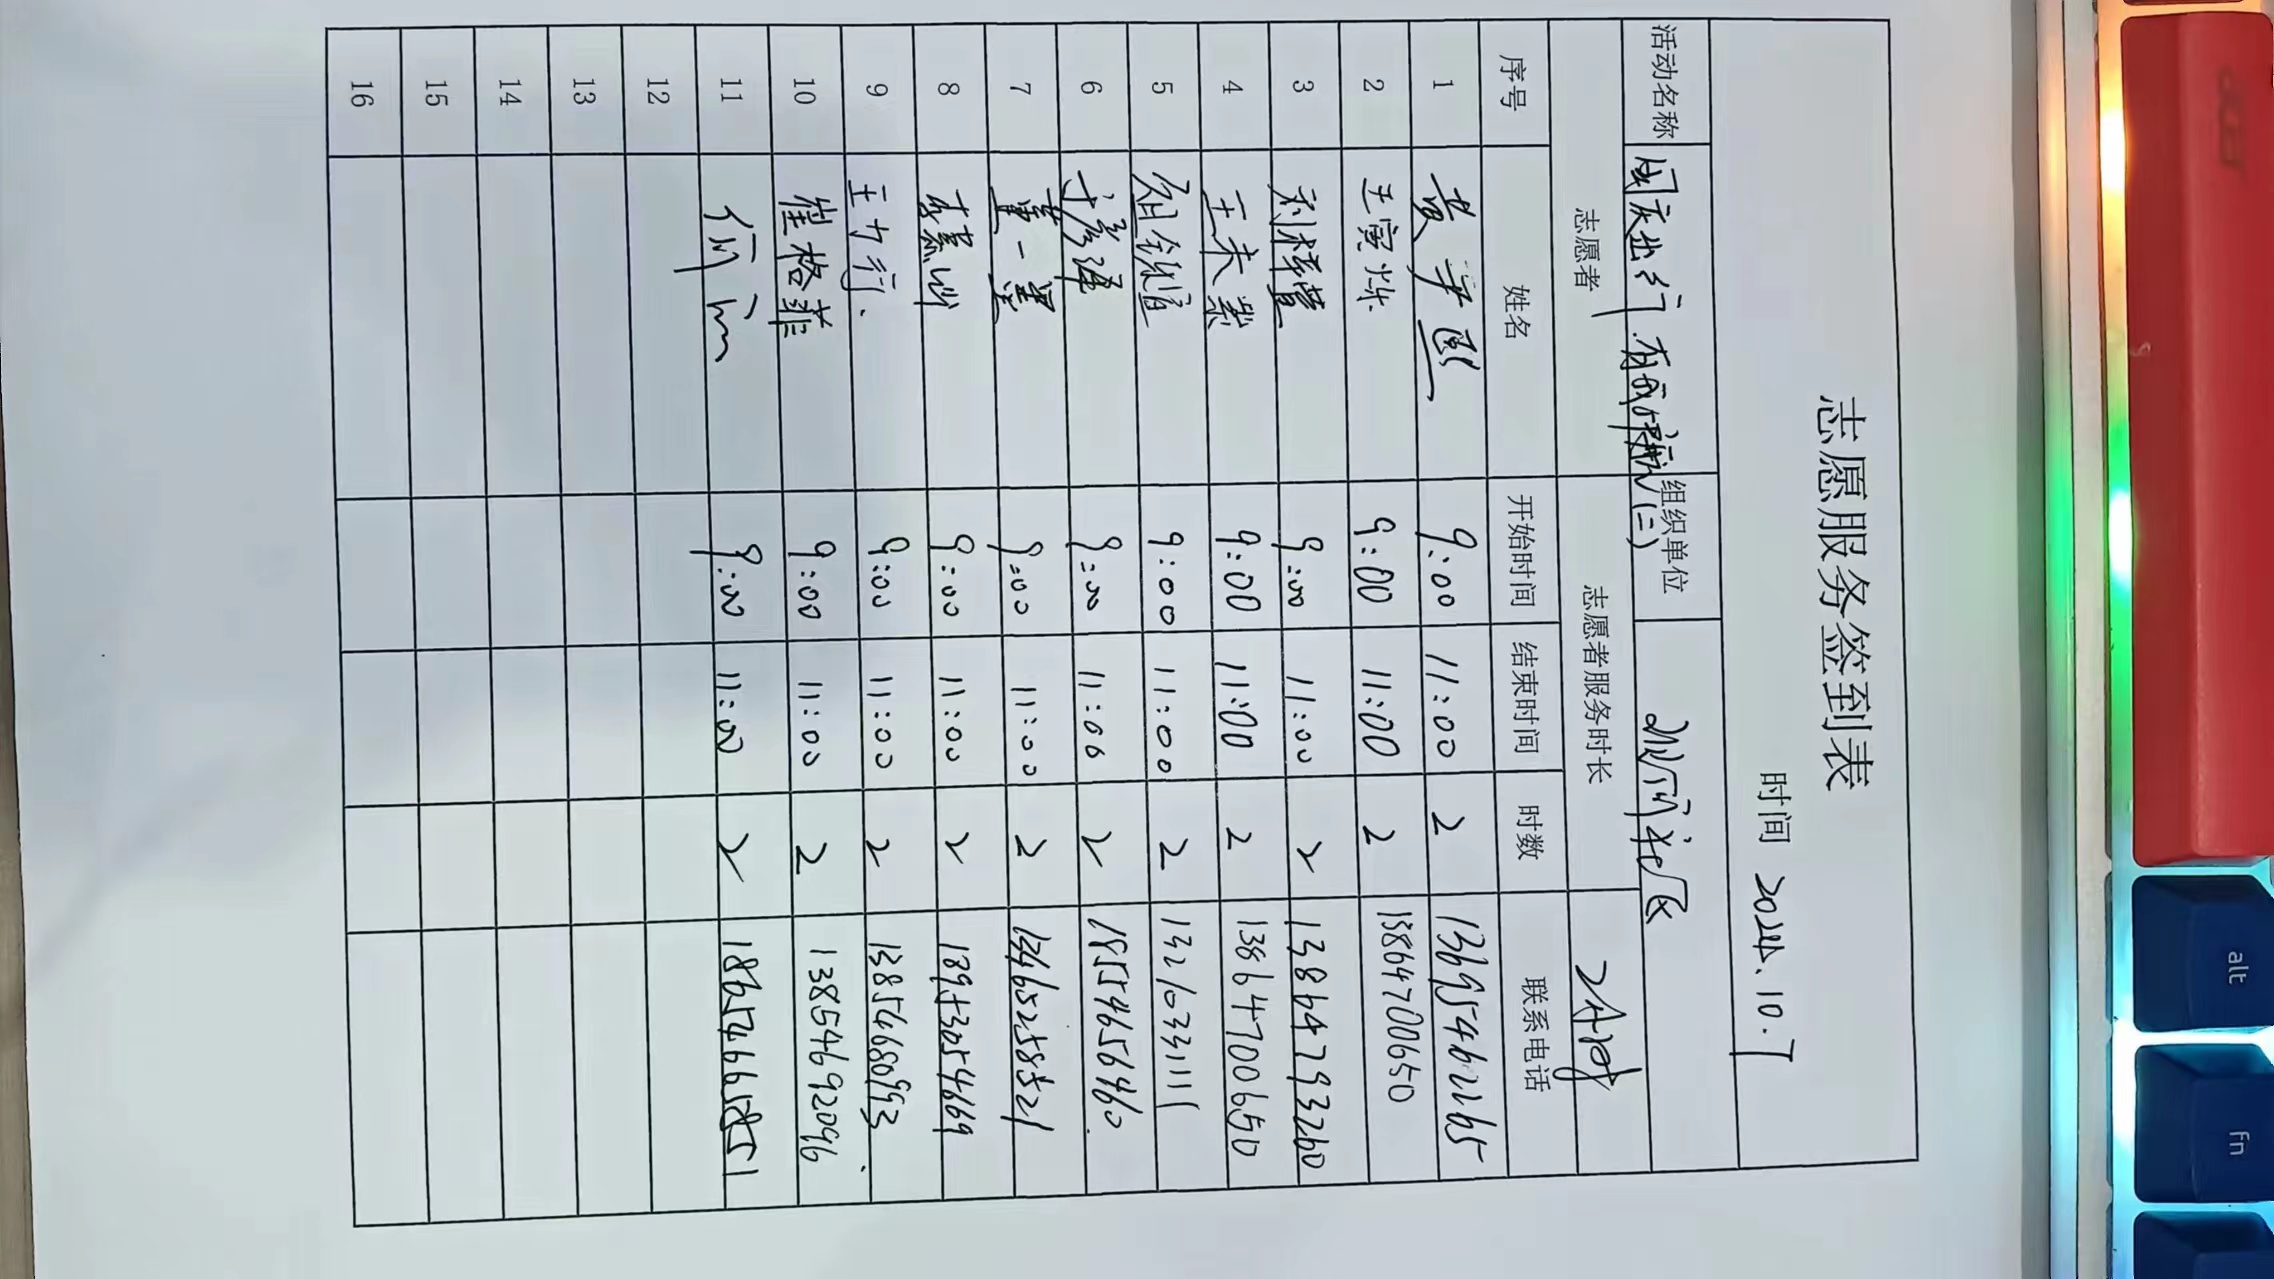 志愿服务签到表
时间 2024.10.7
活动名称 国庆出行.有我护航(二) 组织单位
志愿者 志愿者服务时长
序号 姓名 开始时间 结束时间 时数 联系电话
1 9:00 11:00 2 13695462265
2 王寅烁 9:00 11:00 2 13864700650
3 刘梓萱 9:00 11:00 2 13864793260
4 王未紫 9:00 11:00 2 13864700650
5 9:00 11:00 2 13210331111
6 9:00 11:00 2 18554656460
7 董一墨 9:00 11:00 2 13465258521
8 李慕 9:00 11:00 2 18953054669
9 王力行. 9:00 11:00 2 13854680993
10 崔格菲 9:00 11:00 2 13854692096
11 9:00 11:00 2
12
13
14
15
16
alt
Fn